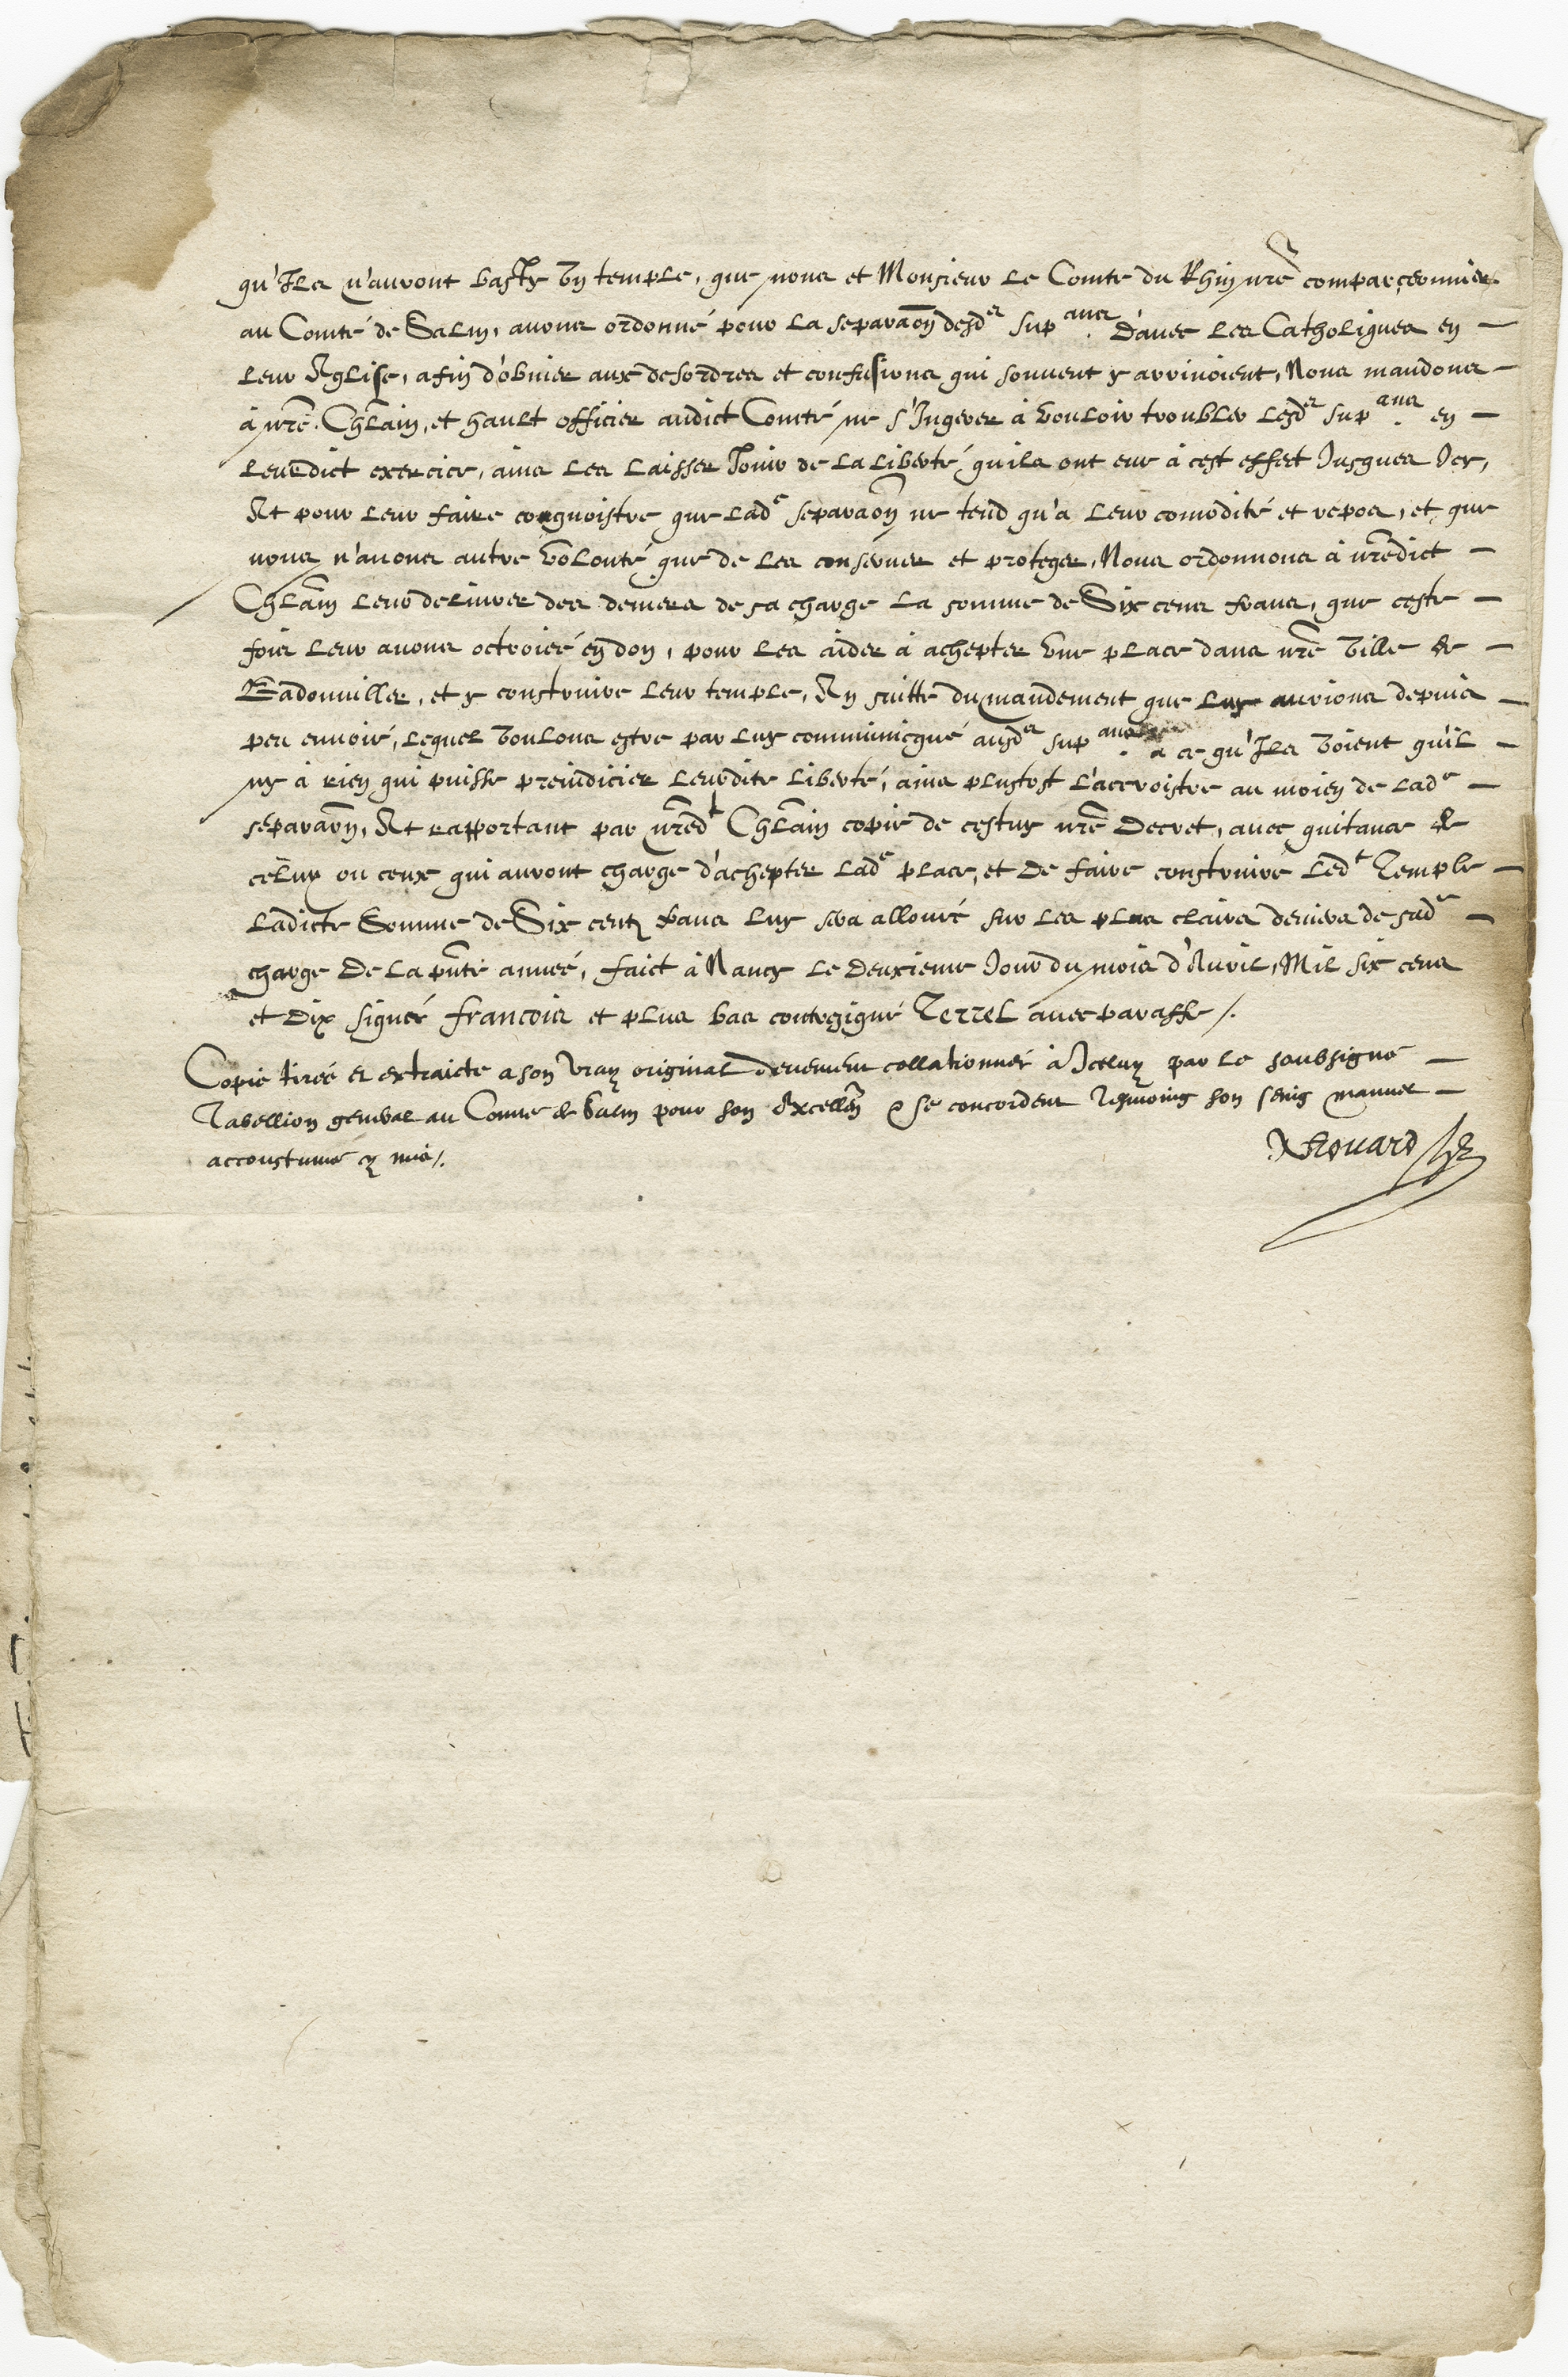 qu'Ilz n'auront basty un temple, que nous et Monsieur le Comte du Rhin nrẽ comparçonnier
au Comté de Salm, avons ordonné pour la separaon desd.es sup.ans d'avec les Catholiques en –
leur Eglise, afin d'obvier aux desordres et confusions qui souvent y arrivoient, Nous mandons –
à nrẽ Chlãin, et hault officier audict Comté ne s'Ingerer à vouloir troubler lesd.es sup.ans en –
leurdict exercice, ains les laisser Jouir de la liberté, quils ont eue à cest effect Jusques Icy,
Et pour leur faire congnoistre que lad.e separaõn ne tend qu'a leur comõdité et repos, et que
nous n'avons autre volonté que de les conserver et proteger, Nous ordonnons à nrẽdict –
Chlãin leur delivrer des deniers de sa charge la somme de Six cens frans, que ceste –
fois leur avons octroiée en don, pour les aider à achepter une place dans nrẽ ville de –
Badonviller, et y construire leur temple, En suitte du mandement que luy aurions depuis –
peu envoié, lequel voulons estre par luy communicqué ausd.es sup.ans a ce qu'Ils voient qu'il –
ny à rien qui puisse preiudicier leurdite liberté, ains plustost l'accroistre au moien de lad.e –
separaon, Et rapportant par nrẽd.t Chlãin copie de cestuy nrẽ Decret, avec quitance de
celuy ou ceux qui auront charge d'achepter lad.e place, et de faire construire led.t Temple –
Ladicte Somme de Six centz frans luy sera allouée sur les plus clairs deniers de sad.e –
charge De la pñte année, faict à Nancy le deuxieme Jour du mois d'Avril, Mil six cens
et dix signée francois et plus bas contresigné Terrel avec paraffe /.
Copie tirée et extraicte a son vray original deuement collationnée à Iceluy par le soubsigné –
Tabellion general au Comté de Salm pour son Excellẽn & se concordent Tesmoing son seing manuel –
accoustumé cy mis /.